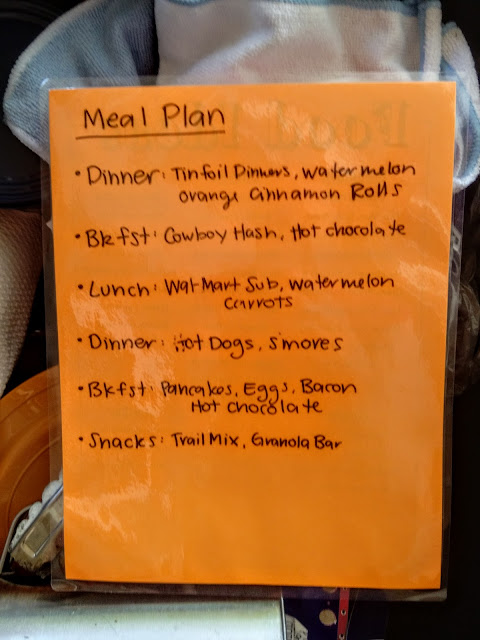 Meal Plan
• Dinner: Tinfoil Dinners, watermelon
orange Cinnamon Rolls
• Bkfst: Cowboy Hash, Hot chocolate
• Lunch: Wal-Mart Sub, watermelon
carrots
• Dinner: Hot Dogs, s'mores
• Bkfst: Pancakes, Eggs, Bacon
Hot chocolate
• Snacks: Trail Mix, Granola Bar